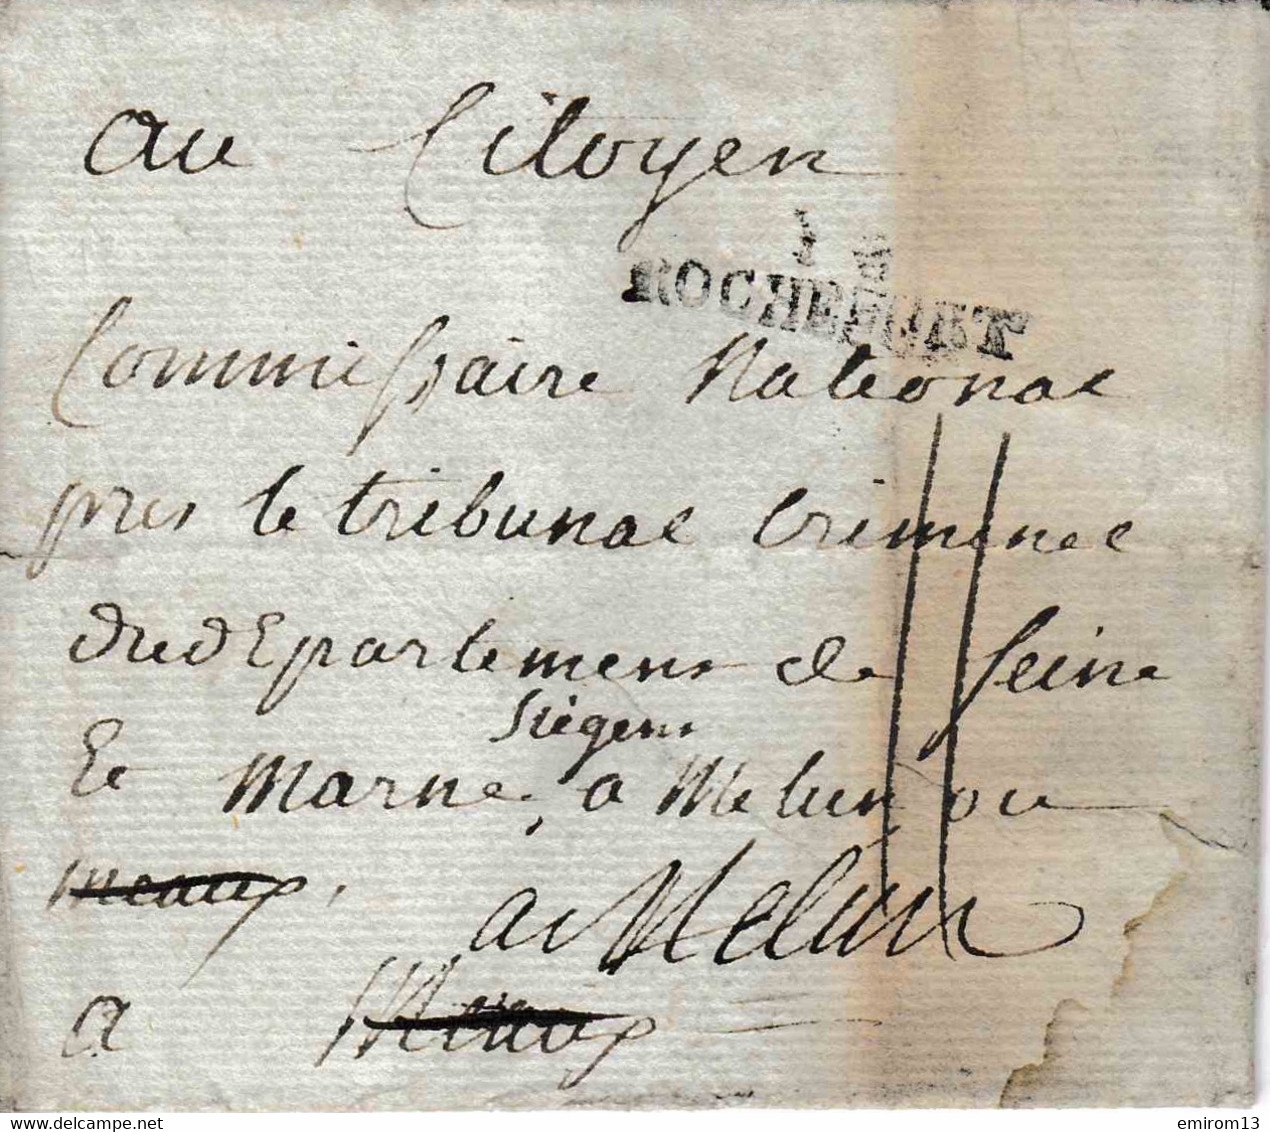 au Citoyen
ROCHEFORT
Commissaire National
pres le tribunal Criminel
du dEpartement de Seine
siégent
Et Marne, a Melun, ou
meaux,
a Melun
a Meaux
emirom13
delcampe.net